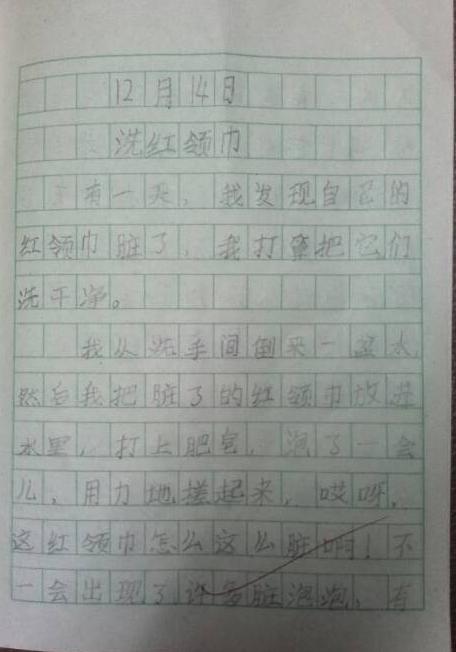 12月14日
洗红领巾
有一天，我发现自己的
红领巾脏了，我打算把它们
洗干净。
我从洗手间倒来一盆水，
然后我把脏了的红领巾放进
水里，打上肥皂，泡了一会
儿，用力地搓起来，哎呀，
这红领巾怎么这么脏啊！不
一会出现了许多脏泡泡，有